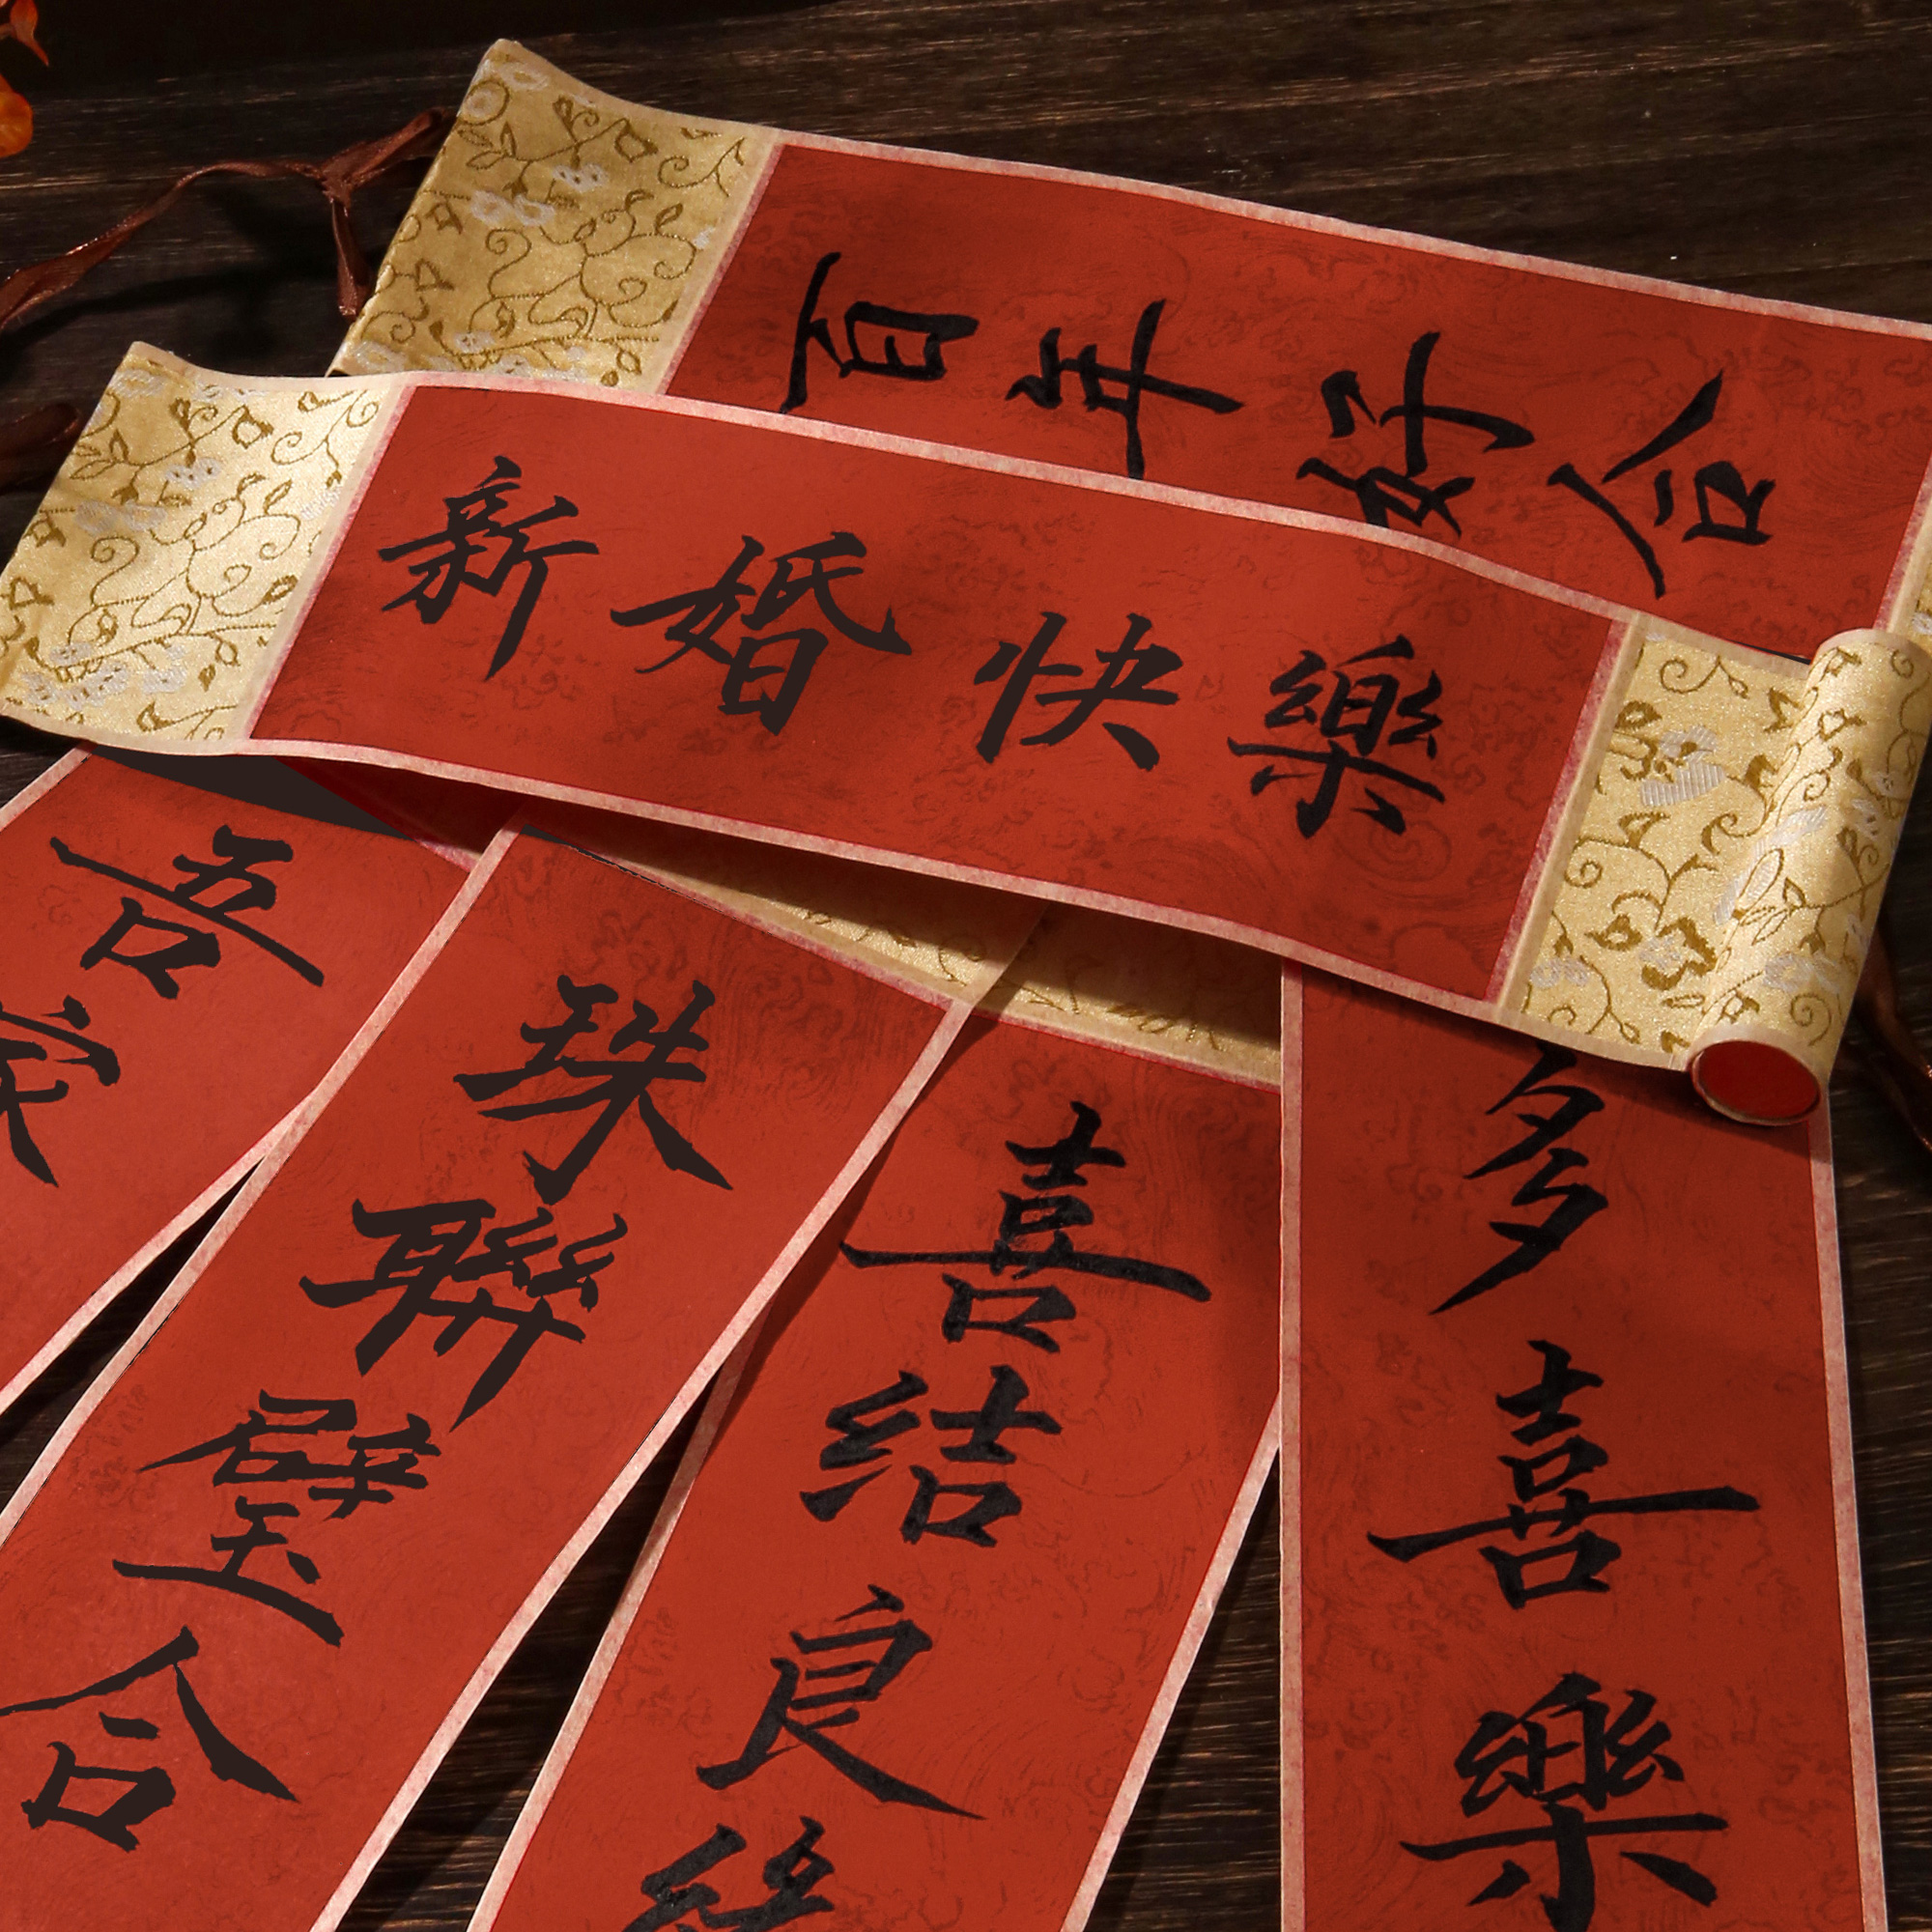 百年好合
新婚快樂
吾家
珠聯璧合
喜結良緣
多喜樂